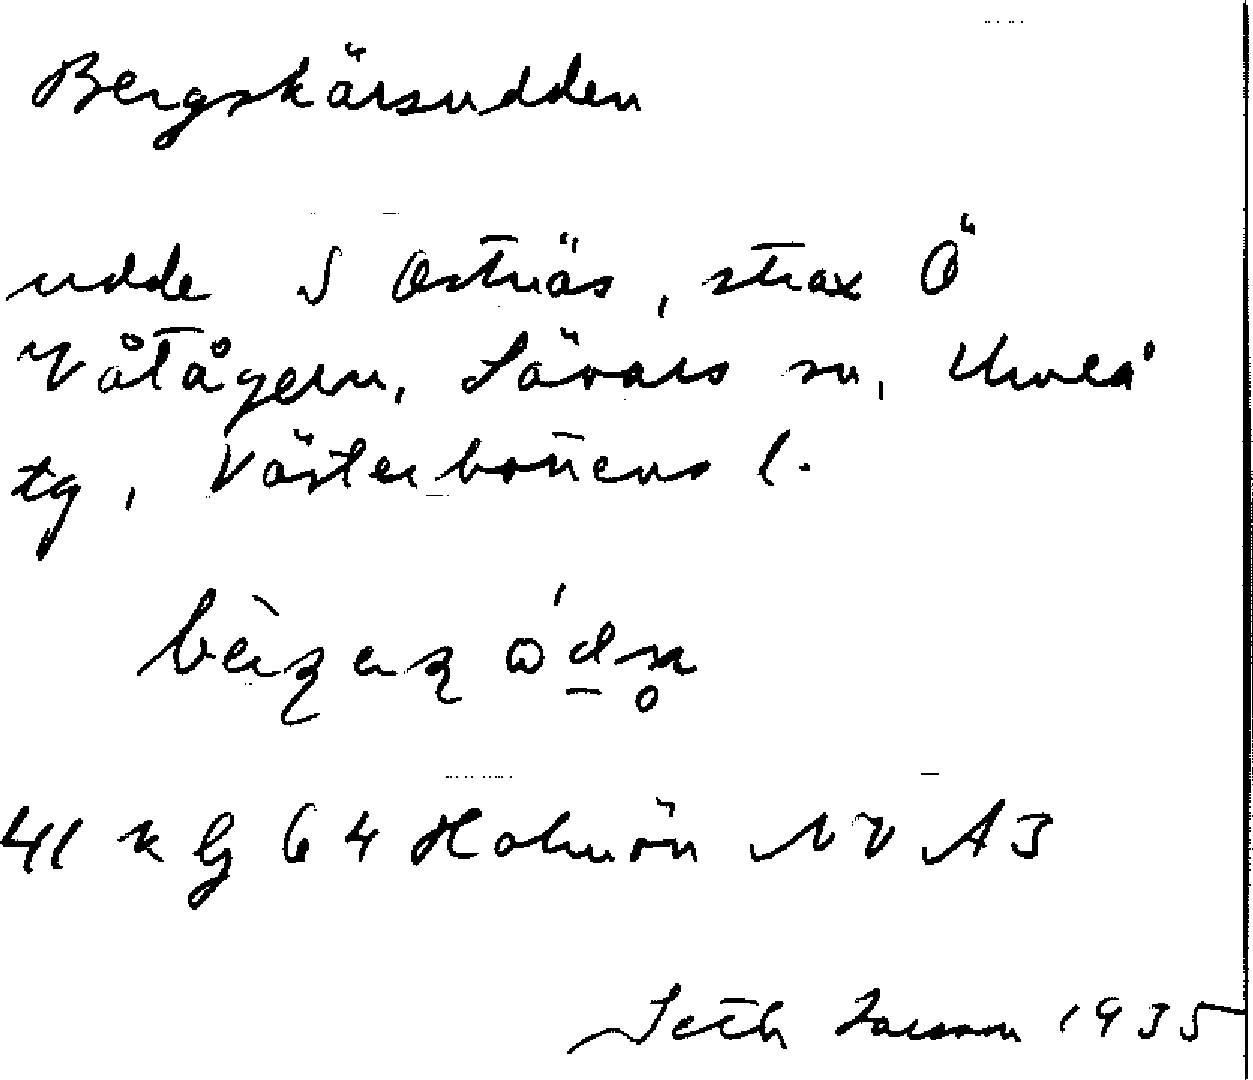 Bergskärsudden
udde S Ostnäs, strax Ö
Våtågern, Sävars sn, Umeå
tg, Västerbottens l.
41 k G 64 Holmön NV A3
Seth Larsson 1935